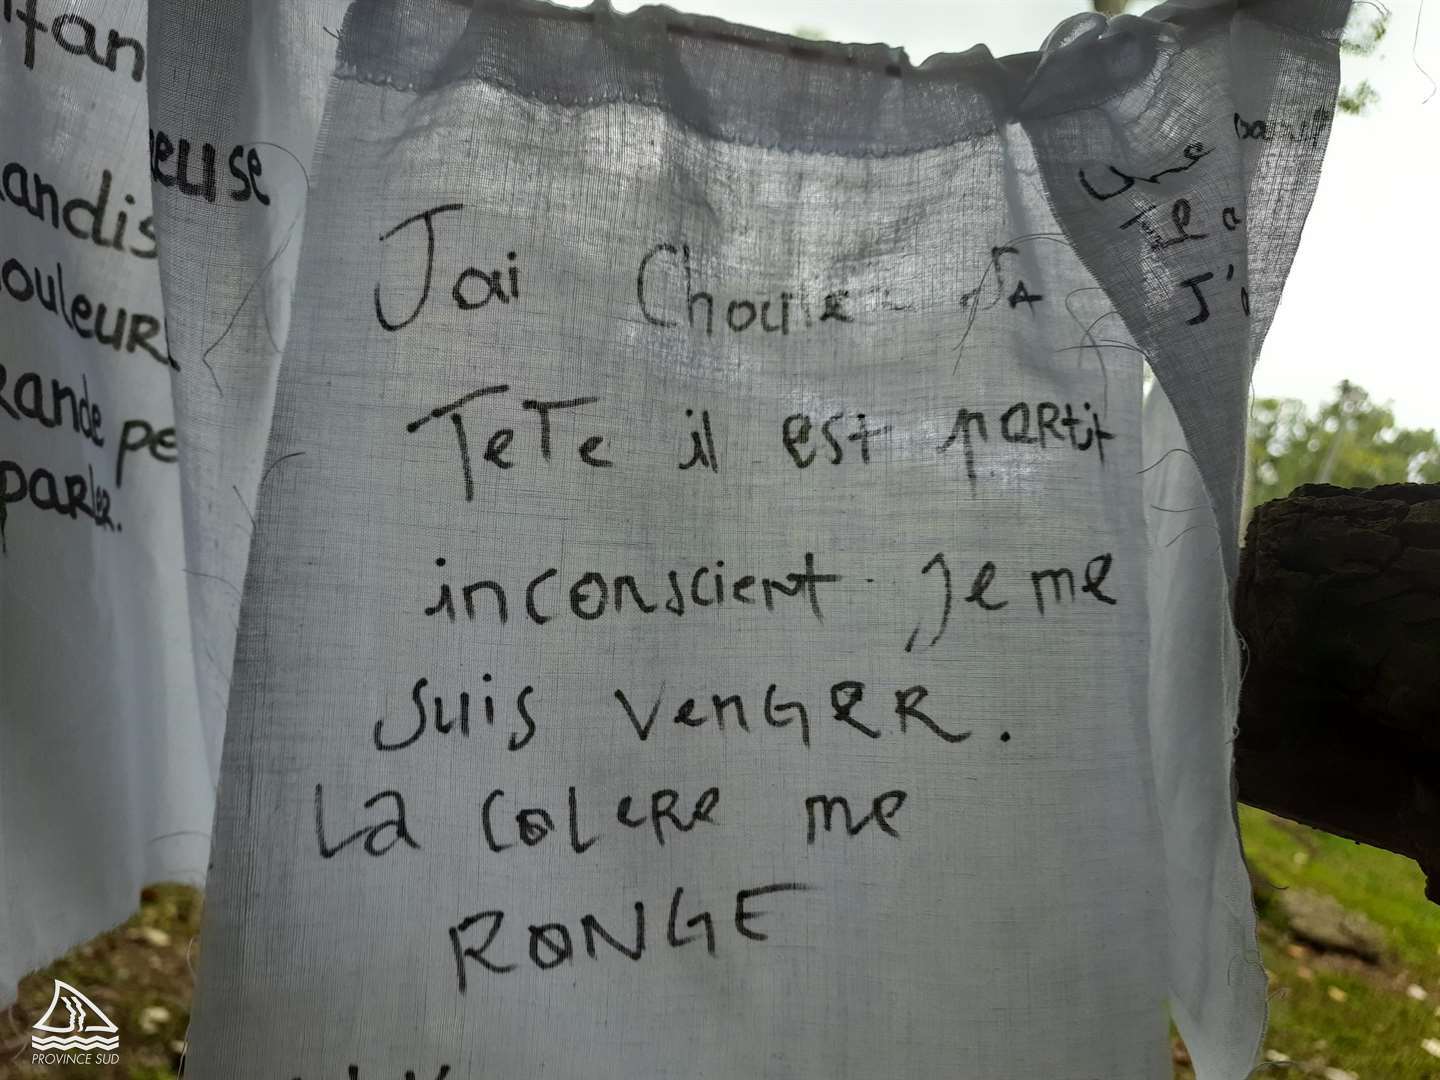 fan
andis
ouleur.
rande pe
parler.
euse
J'ai Choufer SA
TeTe il est partit
inconscient. je me
suis venGER.
La colere me
RONGE
une
J'
PROVINCE SUD